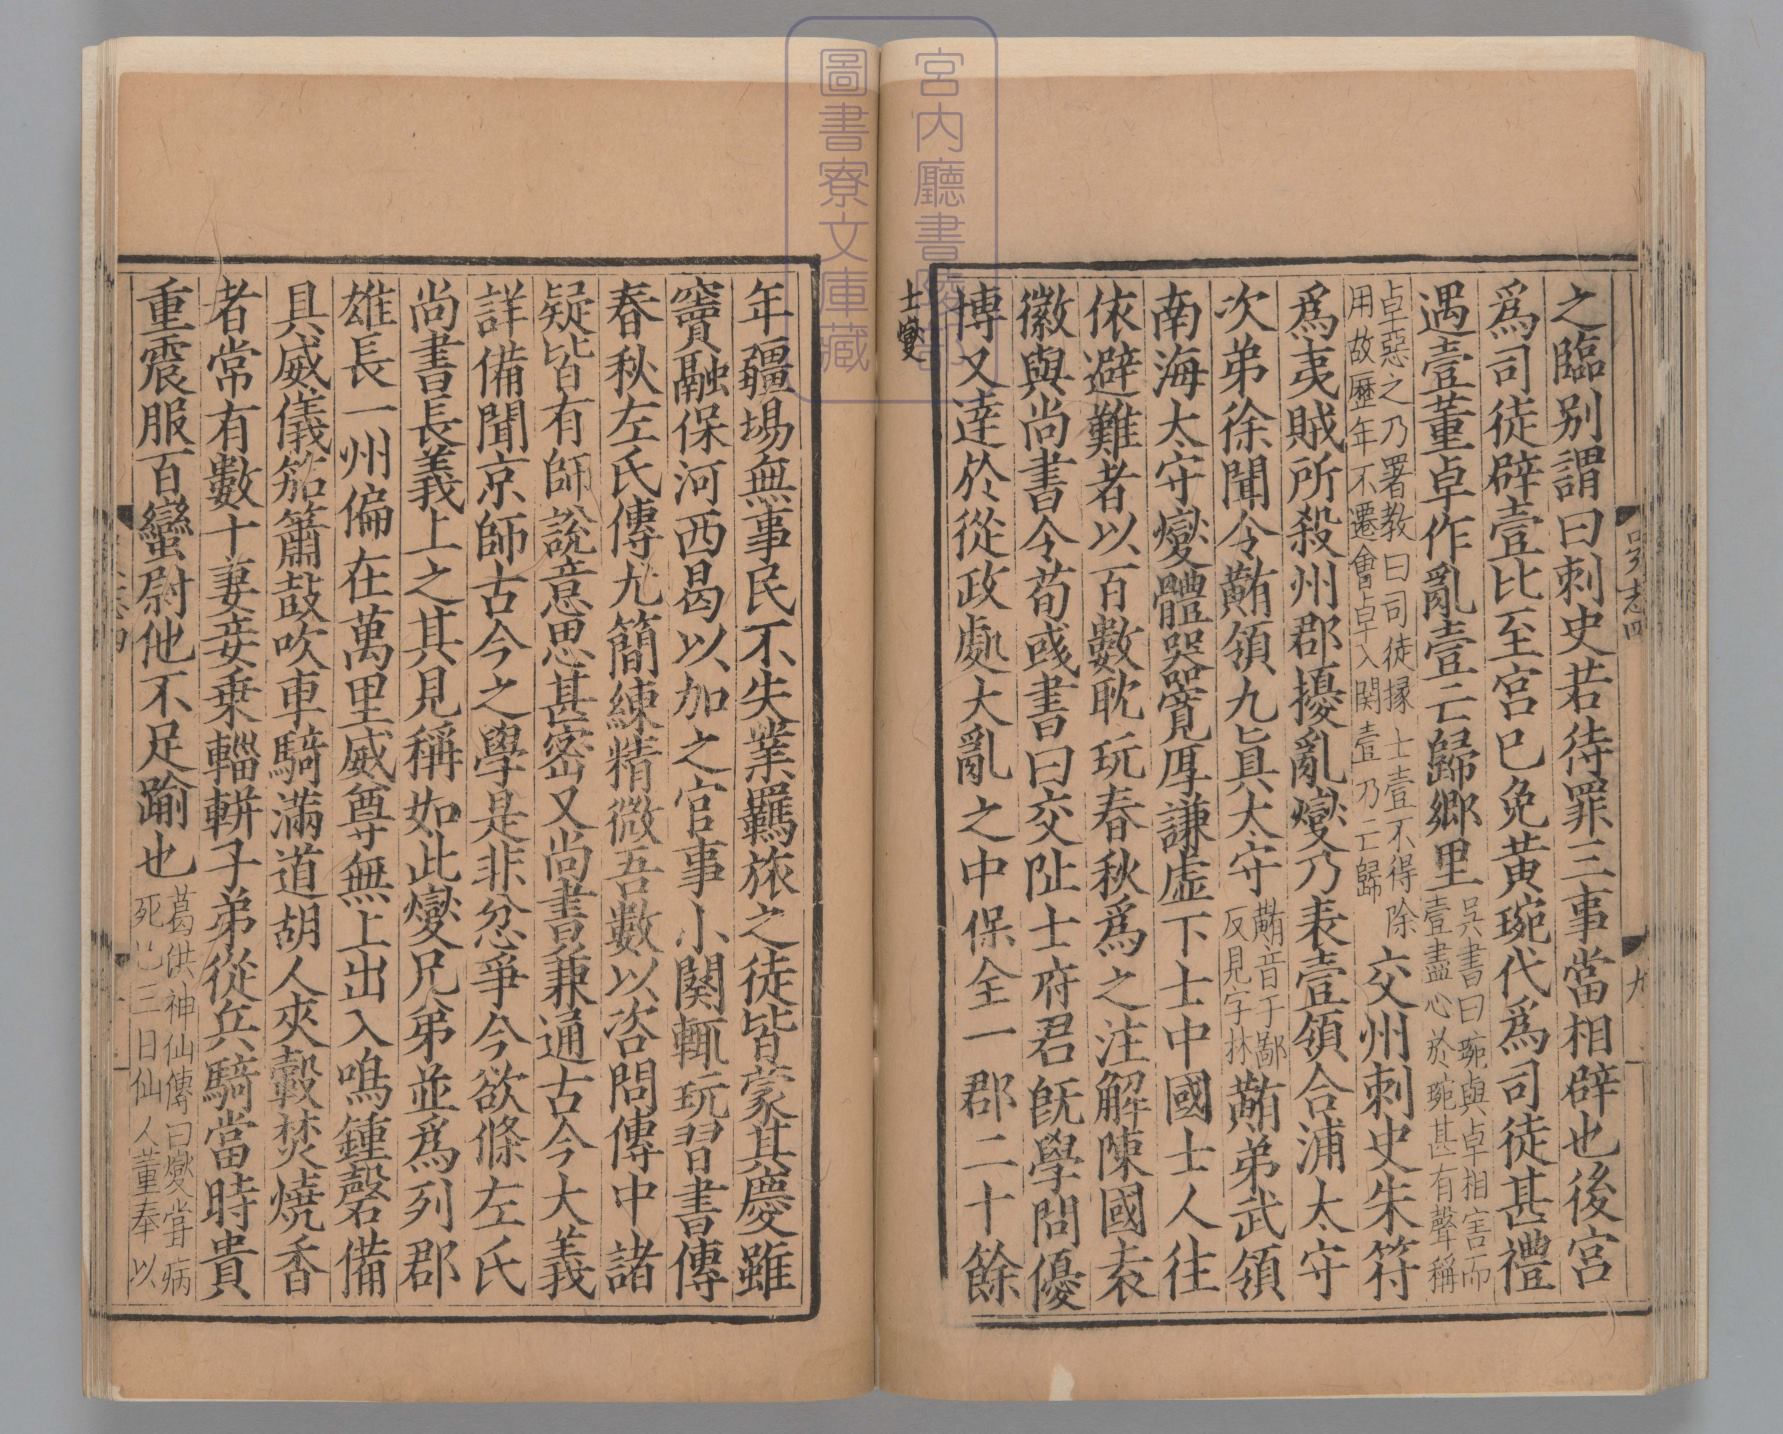 之臨别謂曰刺史若待罪三事當相辟也後宮
爲司徒辟壹比至宮已免黄琬代爲司徒甚禮
遇壹董卓作亂壹亡歸鄉里吳書曰琬與卓相害而壹盡心於琬甚有聲稱
卓惡之乃署教曰司徒掾士壹不得除用故歷年不遷會卓入関壹乃亡歸交州刺史朱符
爲夷賊所殺州郡擾亂燮乃表壹領合浦太守
次弟徐聞令䵋領九真太守䵋音于鄙反見字林䵋弟武領
南海太守燮體器寬厚謙虚下士中國士人往
依避難者以百數耽玩春秋爲之注解陳國袁
徽與尚書令荀彧書曰交阯士府君旣學問優
博又達於從政處大亂之中保全一郡二十餘
士燮
吳志四
九
年疆場無事民不失業羈旅之徒皆蒙其慶雖
竇融保河西曷以加之官事小闋輒玩習書傳
春秋左氏傳尤簡練精微吾數以咨問傳中諸
疑皆有師說意思甚密又尚書兼通古今大義
詳備聞京師古今之學是非忿爭今欲條左氏
尚書長義上之其見稱如此燮兄弟並爲列郡
雄長一州偏在萬里威尊無上出入鳴鍾磬備
具威儀笳簫鼓吹車騎滿道胡人夾轂焚燒香
者常有數十妻妾乗輜軿子弟從兵騎當時貴
重震服百蠻尉他不足踰也葛洪神仙傳曰燮甞病死已三日仙人董奉以
宮内廳書陵部
圖書寮文庫藏